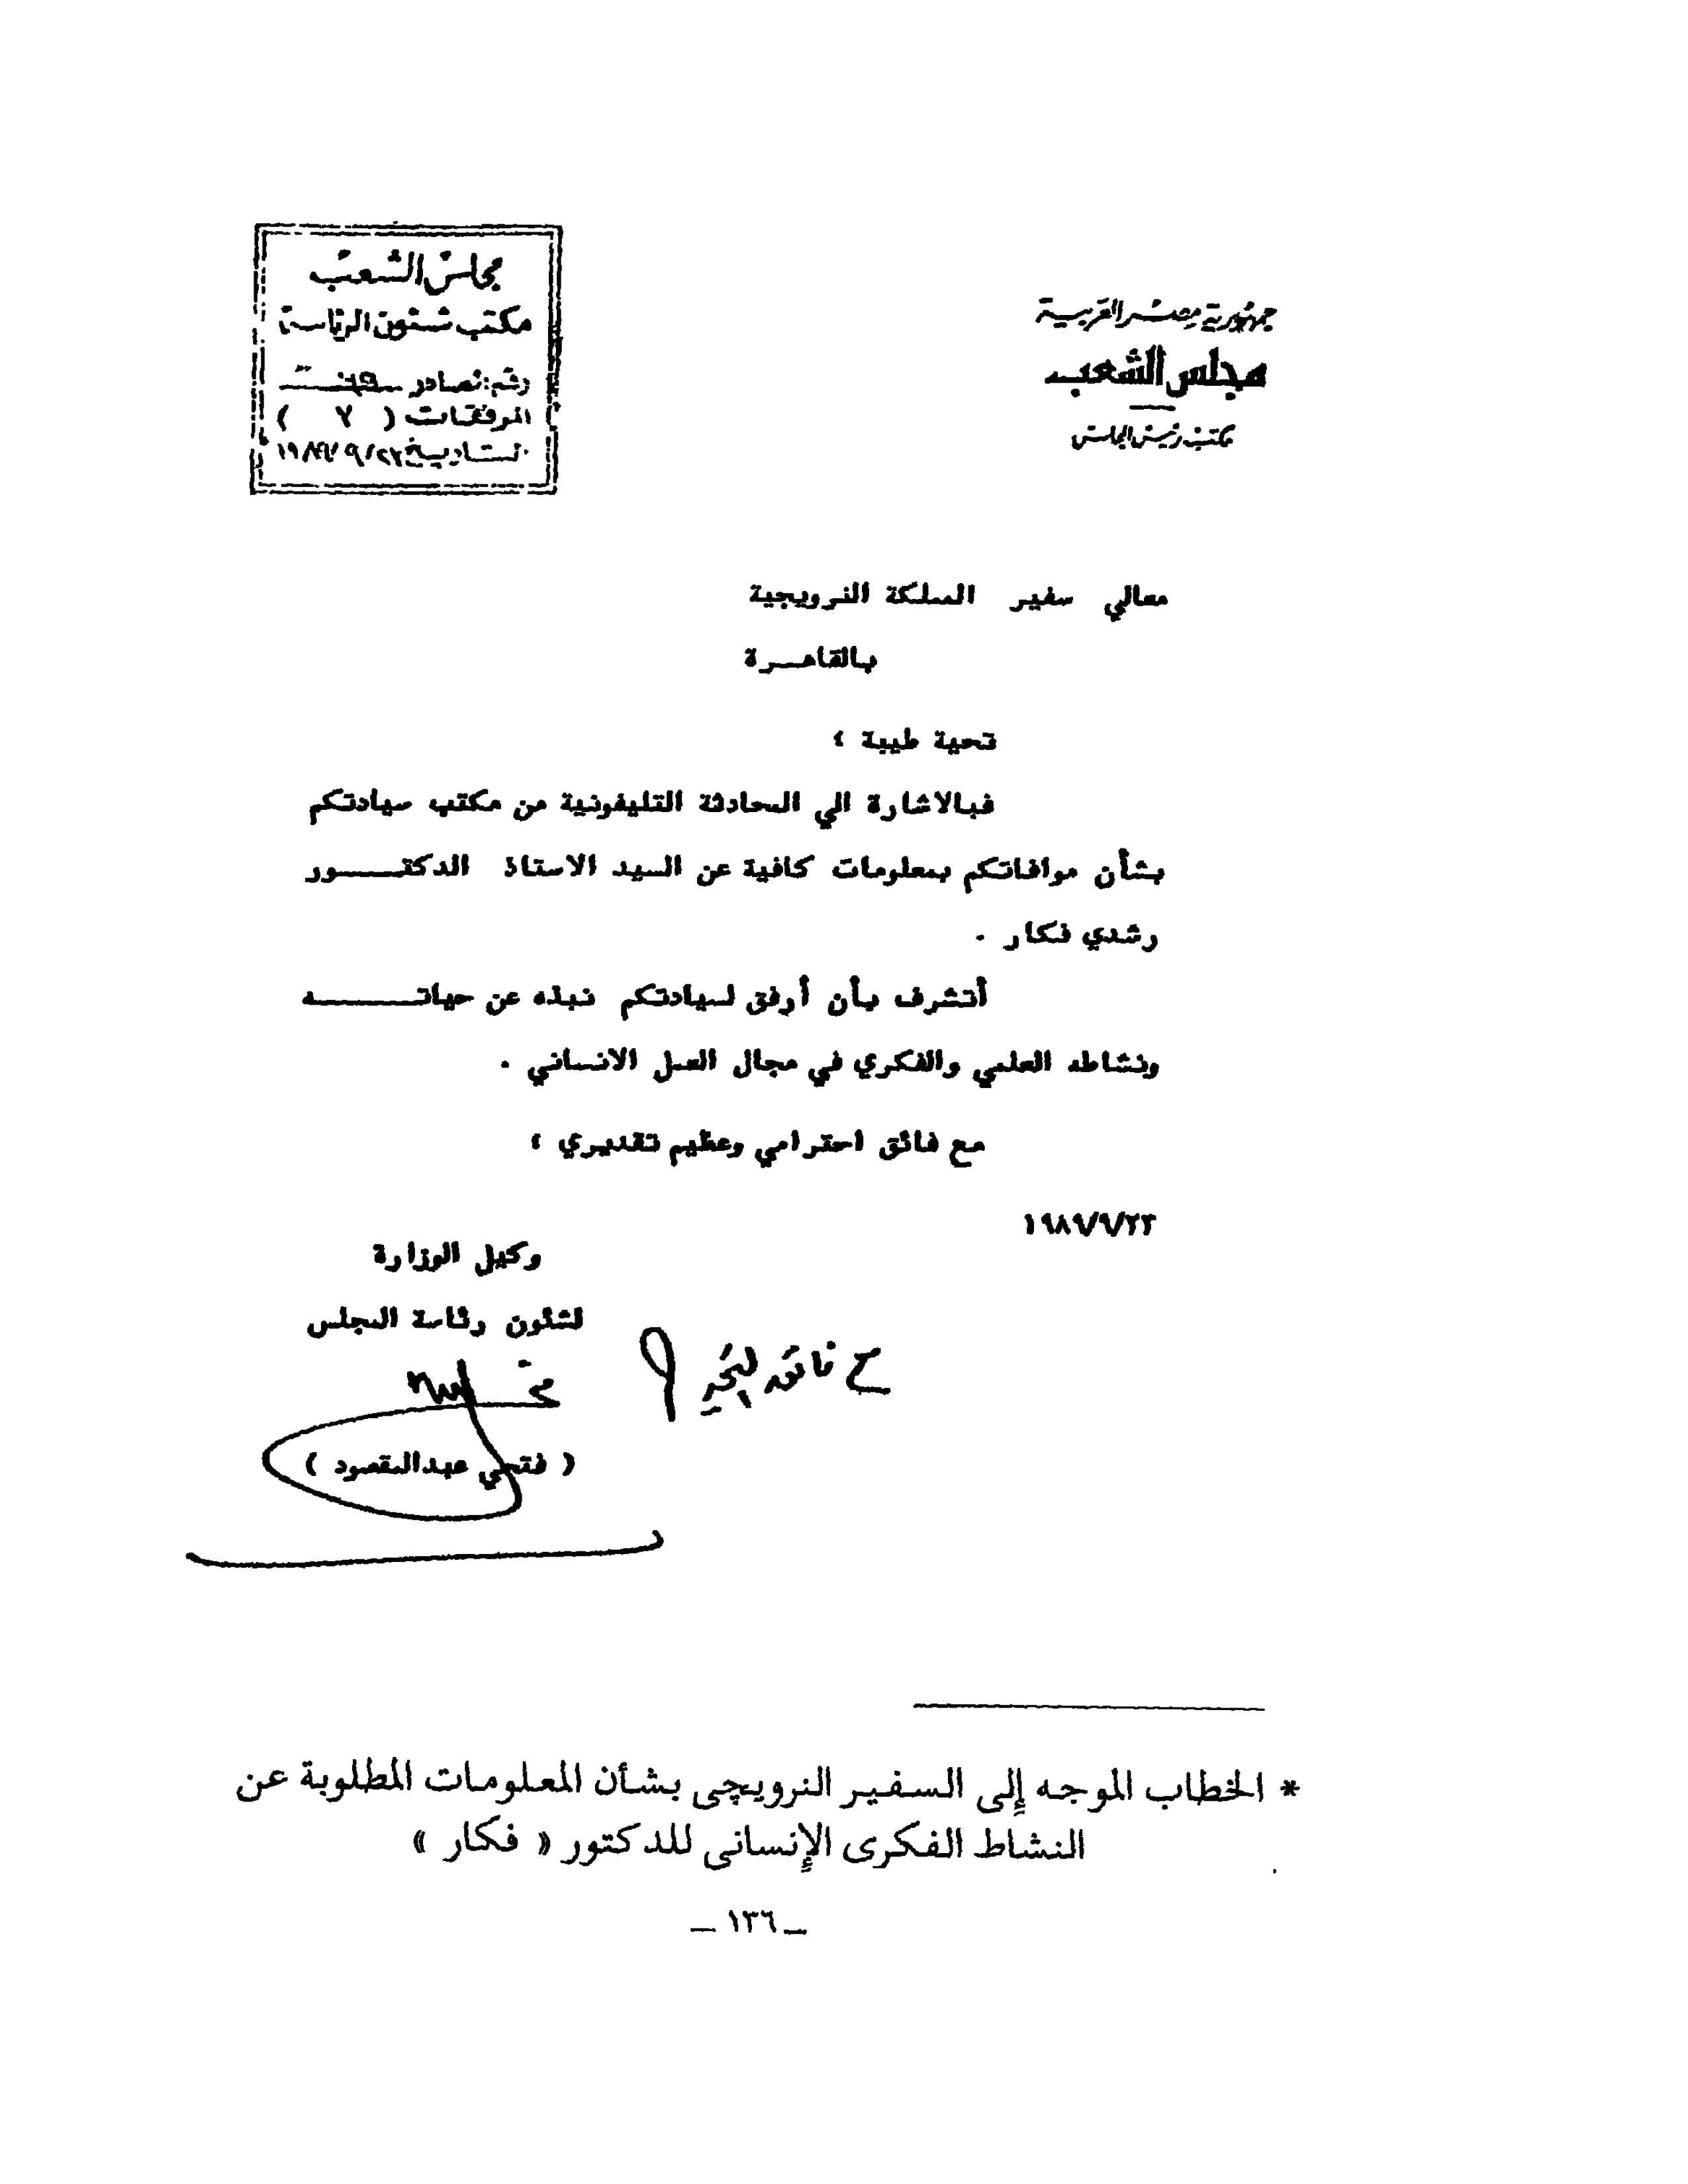 جمهورية مصر العربية
مجلس الشعب
مكتب رئيس المجلس
مجلس الشعب
مكتب شئون الرئاسة
رقم: صادر
المرفقات ( ٧ )
التاريخ ٢٣/ ٩/ ١٩٨٩
معالي سفير المملكة النرويجية
بالقاهـــرة
تحية طيبة ؛
فبالاشارة الي المحادثة التليفونية من مكتب سيادتكم
بشأن موافاتكم بمعلومات كافية عن السيد الاستاذ الدكتـــــور
رشدي فكار .
أتشرف بأن أرفق لسيادتكم نبذه عن حياتـــــــــه
ونشاطه العلمي والفكري في مجال العمل الانساني .
مع فائق احترامي وعظيم تقديري ؛
١٩٨٩/٩/٢٣
وكيل الوزارة
لشئون رئاسة المجلس
( فتحي عبدالمقصود )
* الخطاب الموجه إلى السفير النرويچى بشأن المعلومات المطلوبة عن
النشاط الفكرى الإنسانى للدكتور « فكار »
ــ ١٣٦ ــ